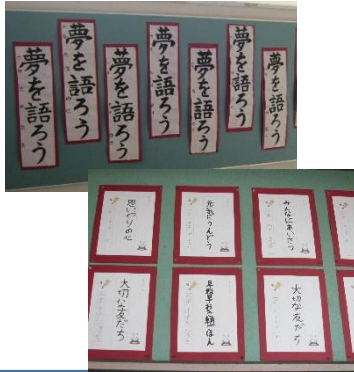 夢を語ろう
夢を語ろう
夢を語ろう
夢を語ろう
夢を語ろう
夢を語ろう
夢を語ろう
思いやりの心
元気にうんどう
みんなにあいさつ
大切な友だち
朝ごはん
大切な友だち